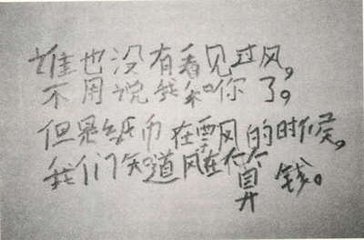 谁也没有看见过风，
不用说我和你了。
但是纸币在飘的时候，
我们知道风在算钱。